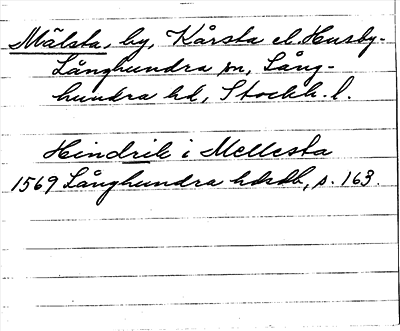 Mälsta, by, Kårsta el. Husby-
Långhundra sn, Lång-
hundra hd, Stockh. l.
Hindrik i Mellesta
1569 Långhundra hdsdb, s. 163.